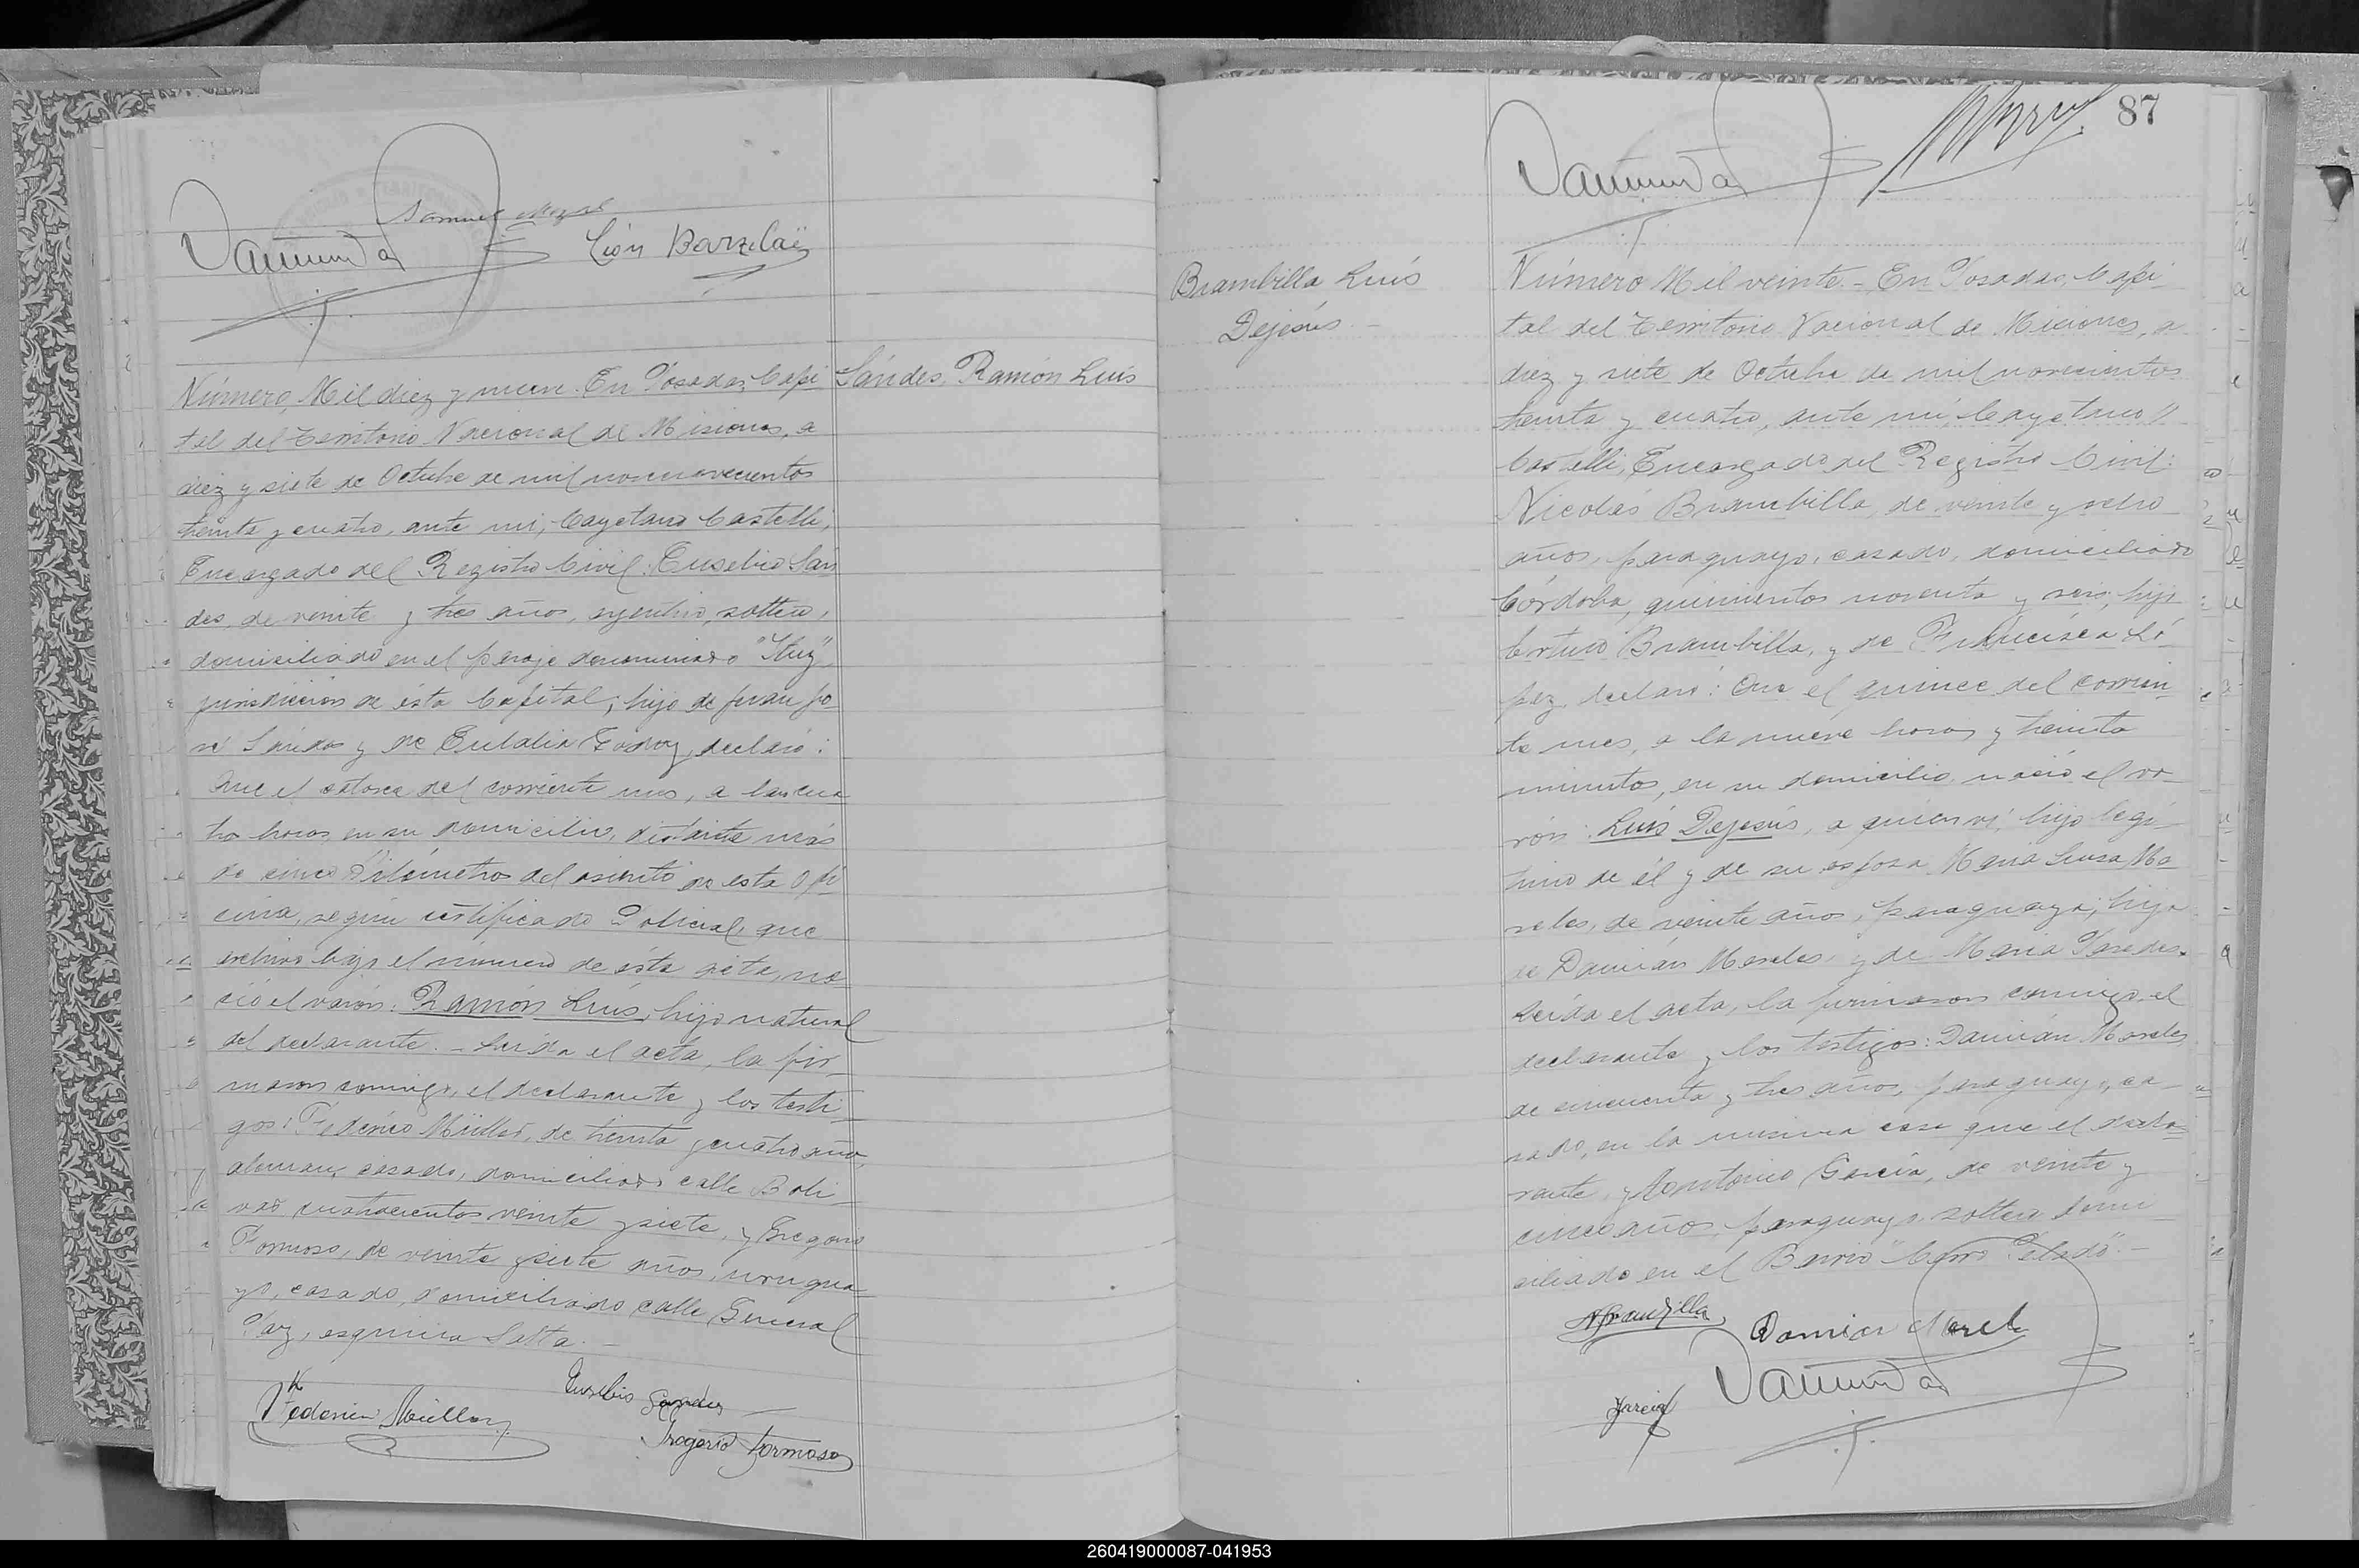 Samuel
León Barzilaï
Número Mil diez y nueve. En Posadas, Capi
tal del Territorio Nacional de Misiones, a
diez y siete de Octubre de mil novecientos
treinta y cuatro, ante mí, Cayetano Castelli,
Encargado del Registro Civil: Eusebio Sán
des, de veinte y tres años, argentino, soltero,
domiciliado en el paraje denominado
jurisdicción de ésta Capital; hijo de Juan Jo
sé Sándes y de Eulalia Godoy, declaró:
Que el catorce del corriente mes, a las cua
tro horas, en su domicilio, distante más
de cinco kilómetros del asiento de esta Ofi
cina, según certificado Policial, que
archivo bajo el número de ésta acta, na
ció el varón: Ramón Luis, hijo natural
del declarante. - Leída el acta, la fir
maron conmigo, el declarante y los testi
gos: Federico Müller, de treinta y cuatro años,
alemán, casado, domiciliado calle Boli
var cuatrocientos veinte y siete, y Gregorio
Formoso, de veinte y siete años, urugua
yo, casado, domiciliado calle General
Paz, esquina Salta. -
Eusebio Sandes
Federico Müller
Gregorio Formoso
Sándes, Ramón Luis
87
Brambilla Luís
Dejesús. -
Número Mil veinte. - En Posadas, Capi
tal del Territorio Nacional de Misiones, a
diez y siete de Octubre de mil novecientos
treinta y cuatro, ante mí, Cayetano
Castelli, Encargado del Registro Civil:
Nicolás Brambilla, de veinte y ocho
años, paraguayo, casado, domiciliado
Córdoba, quinientos noventa y seis, hijo
Brambilla, y de Francisca Ló
pez, declaró: Que el quince del corrien
te mes, a la nueve horas y treinta
minutos, en su domicilio, nació el va
rón: Luís Dejesús, a quien ví, hijo legí
timo de él y de su esposa María Luisa Mo
reles, de veinte años, paraguaya; hija
de Damián Moreles y de María Paredes.
Leída el acta, la firmaron conmigo el
declarante y los testigos: Damián Moreles
de cincuenta y tres años, paraguayo, ca
sado, en la misma casa que el decla
rante, y Antonio García, de veinte y
cinco años, paraguayo, soltero domi
ciliado en el Barrio "Cerro Pelado". -
Damian
Garcia
260419000087-041953